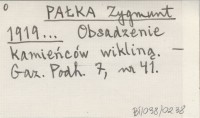 PAŁKA Zygmunt
1919... Obsadzenie
Kamieńców wikliną. —
Gaz. Podh. 7, nr 41.
BI/098/0238